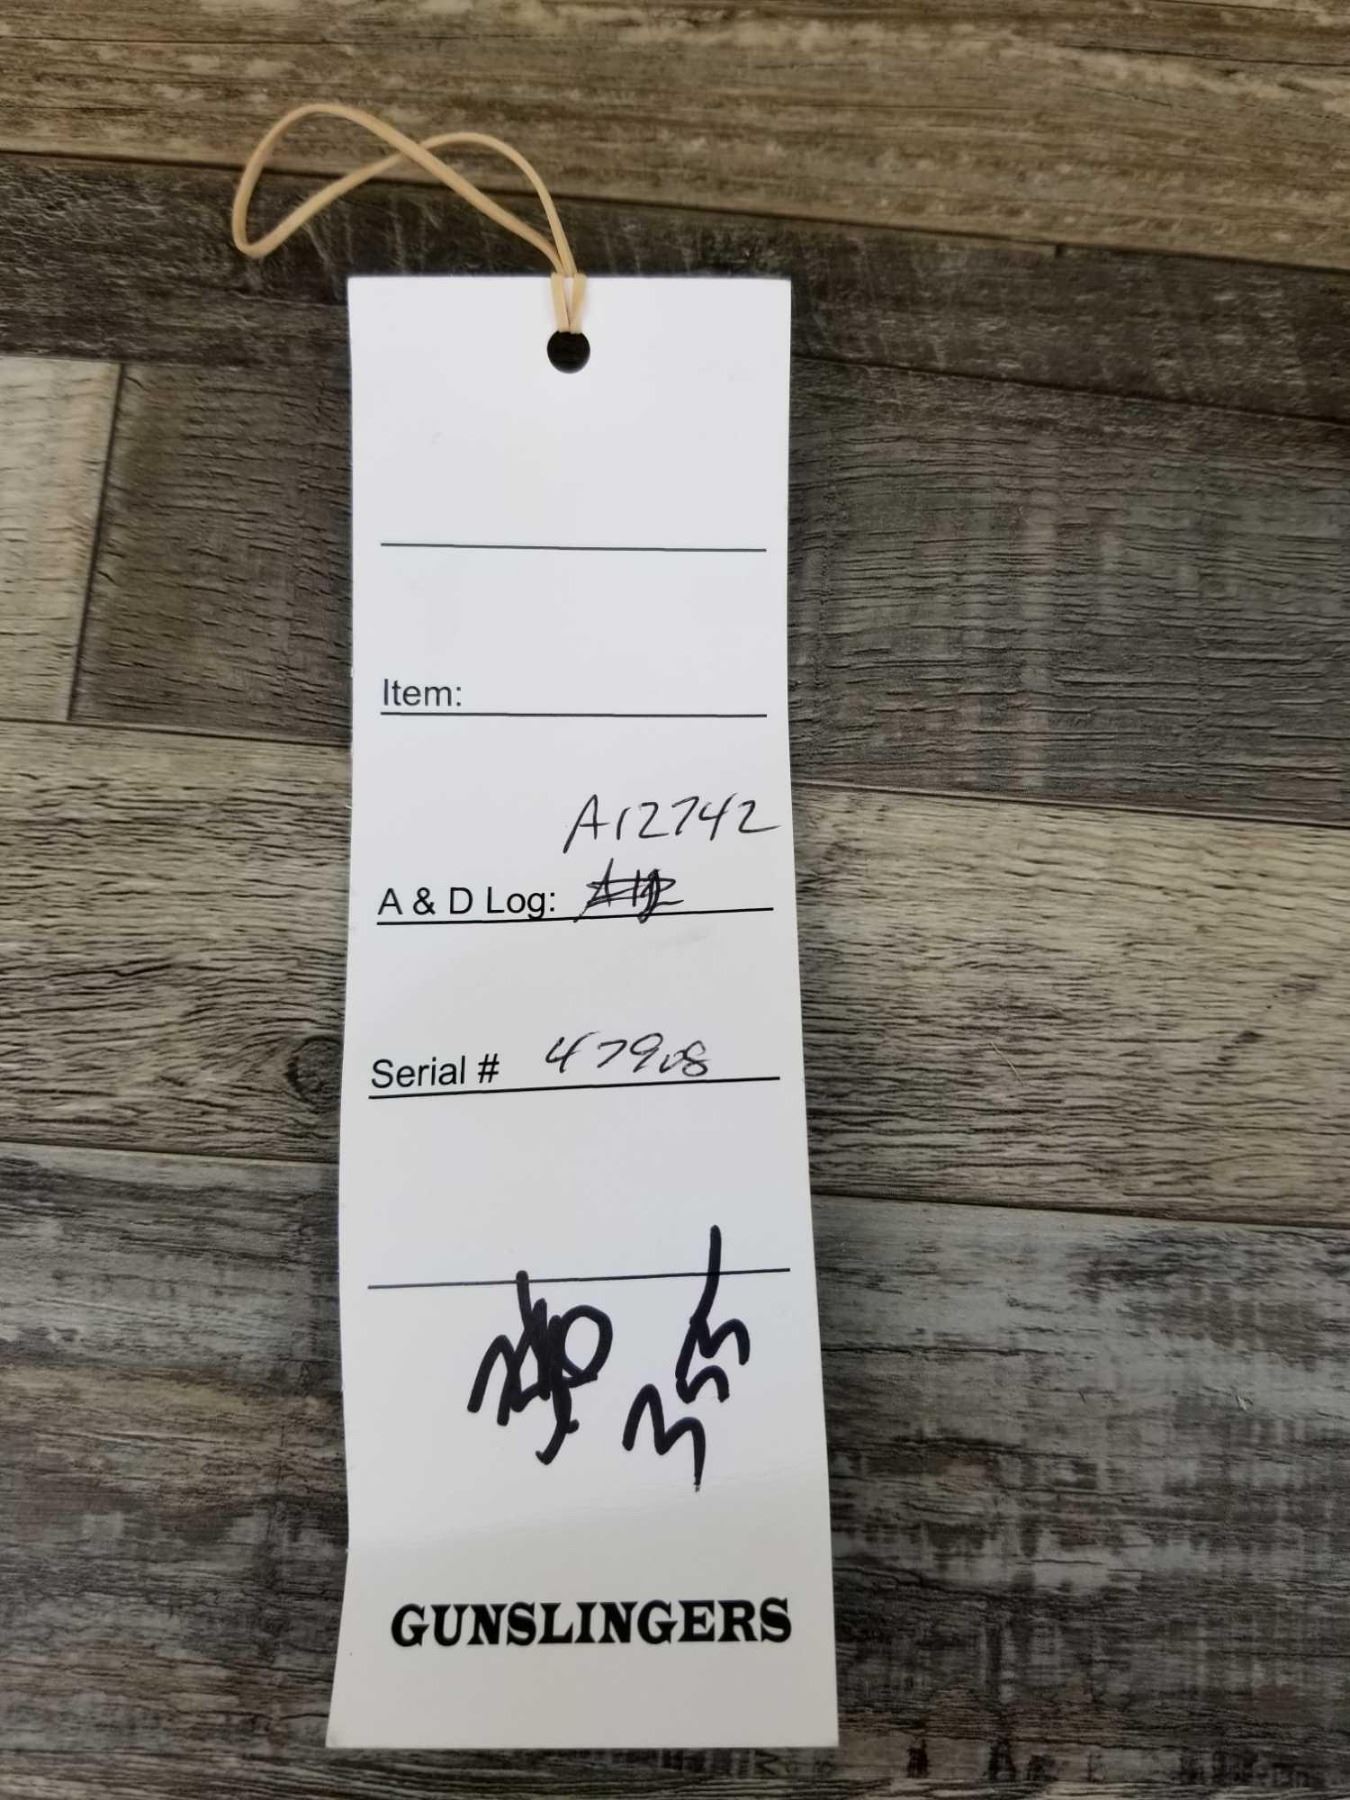 Item:
A12742
A & D Log:
Serial # 47908
GUNSLINGERS